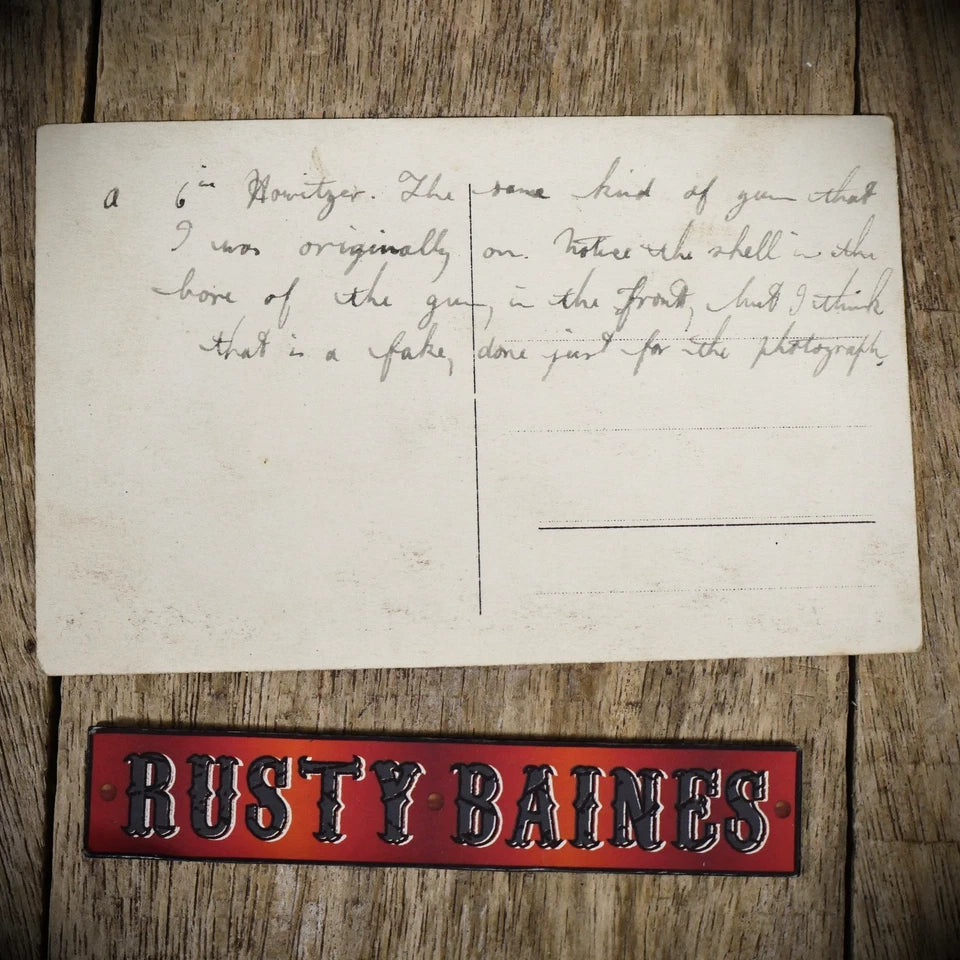 a 6in Howitzer. The same kind of gun that
I was originally on. Notice the shell in the
bore of the gun, in the front, but I think
that is a fake, done just for the photograph.
RUSTY BAINES